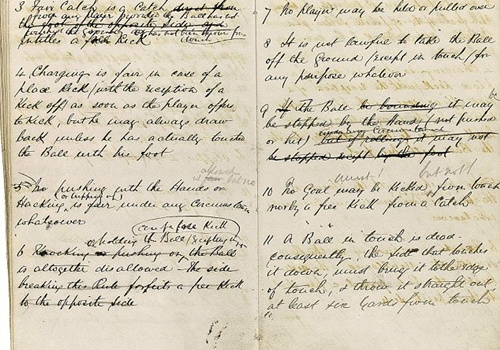 3 Fair Catch is a Catch direct from
entitles a free Kick
4 Charging is fair in case of a
place Kick (with the exception of a
Kick off) as soon as the player offers
to Kick, but he may always draw
back unless he has actually touched
the Ball with his foot
5 No pushing with the Hands or
Hacking is fair under any circumstances
whatsoever
Holding the Ball
6 Knocking or pushing on the Ball
is altogether disallowed The side
breaking this Rule forfeits a free Kick
to the opposite side
7 No player may be held or pulled over
8 It is not lawful to take the Ball
off the Ground (except in touch) for
any purpose whatever
9 If the Ball be bounding it may be
be stopped by the Hand (not pushed
or hit) but if rolling it may not
be stopped except by the foot
must! but not!
10 No Goal may be Kicked from touch
nor by a free Kick from a Catch
11 A Ball in touch is dead
consequently the side that touches
it down, must bring it to the edge
of touch, & throw it straight out
at least six yards from touch